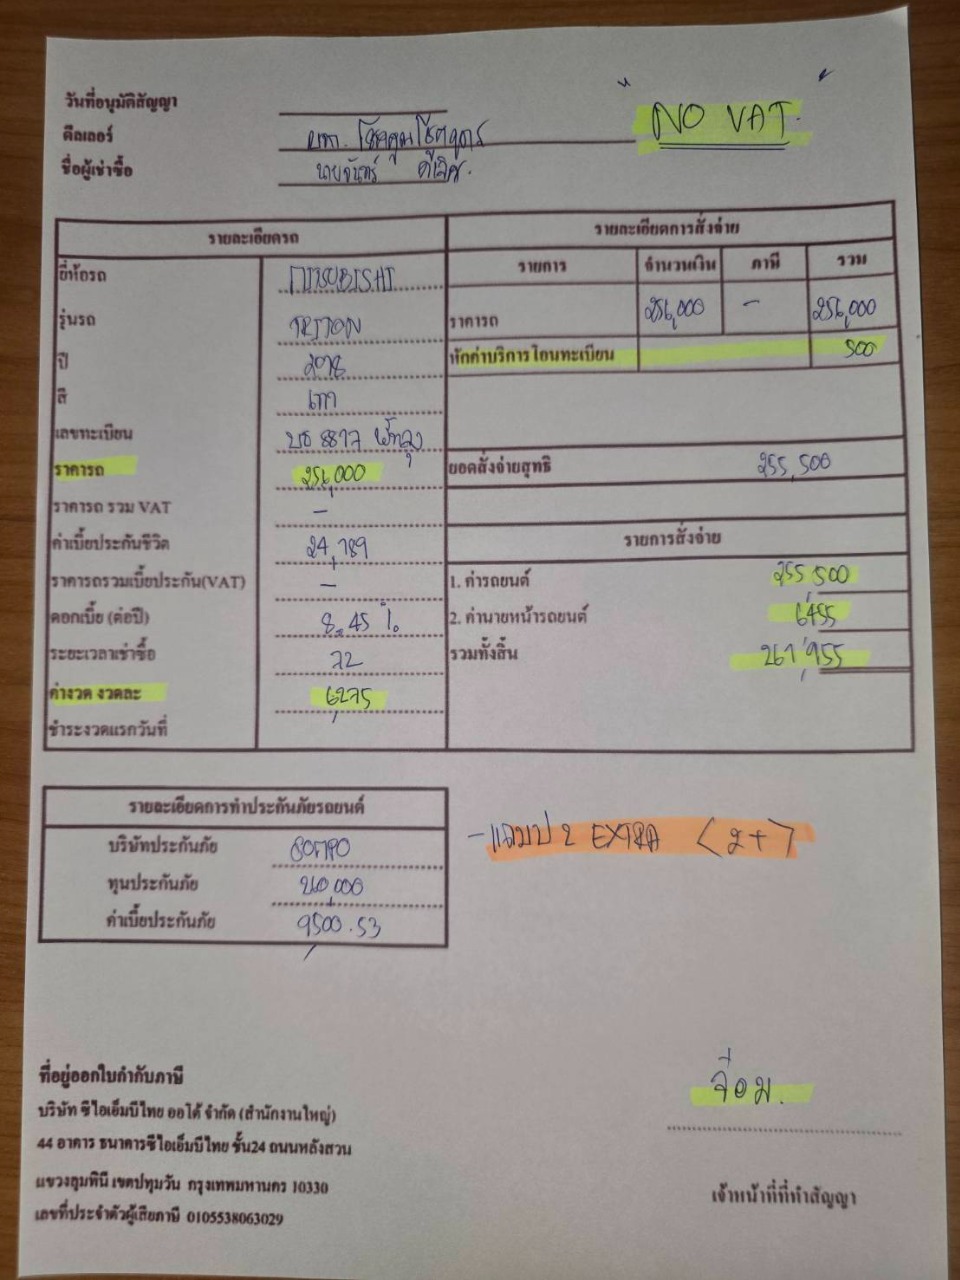 วันที่อนุมัติสัญญา
"NO VAT."
ดีลเลอร์
ชื่อผู้เช่าซื้อ นายจันทร์
รายละเอียดรถ
ยี่ห้อรถ MITSUBISHI
รุ่นรถ TRITON
ปี 2018
สี เทา
เลขทะเบียน บธ 8817 พัทลุง
ราคารถ 256,000
ราคารถ รวม VAT -
ค่าเบี้ยประกันชีวิต 24,789
ราคารถรวมเบี้ยประกัน(VAT) -
ดอกเบี้ย (ต่อปี) 8.45 %
ระยะเวลาเช่าซื้อ 72
ค่างวด งวดละ 6,275
ชำระงวดแรกวันที่
รายละเอียดการสั่งจ่าย
รายการ จำนวนเงิน ภาษี รวม
ราคารถ 256,000 - 256,000
หักค่าบริการโอนทะเบียน 500
ยอดสั่งจ่ายสุทธิ 255,500
รายการสั่งจ่าย
1. ค่ารถยนต์ 255,500
2. ค่านายหน้ารถยนต์ 6455
รวมทั้งสิ้น 261,955
รายละเอียดการทำประกันภัยรถยนต์
บริษัทประกันภัย SOMPO
ทุนประกันภัย 210,000
ค่าเบี้ยประกันภัย 9,500.53
- แถมป 2 EXTRA <2+>
ที่อยู่ออกใบกำกับภาษี
บริษัท ซีไอเอ็มบีไทย ออโต้ จำกัด (สำนักงานใหญ่)
44 อาคาร ธนาคารซีไอเอ็มบีไทย ชั้น24 ถนนหลังสวน
แขวงลุมพินี เขตปทุมวัน กรุงเทพมหานคร 10330
เลขที่ประจำตัวผู้เสียภาษี 0105538063029
จ๋อม.
เจ้าหน้าที่ที่ทำสัญญา